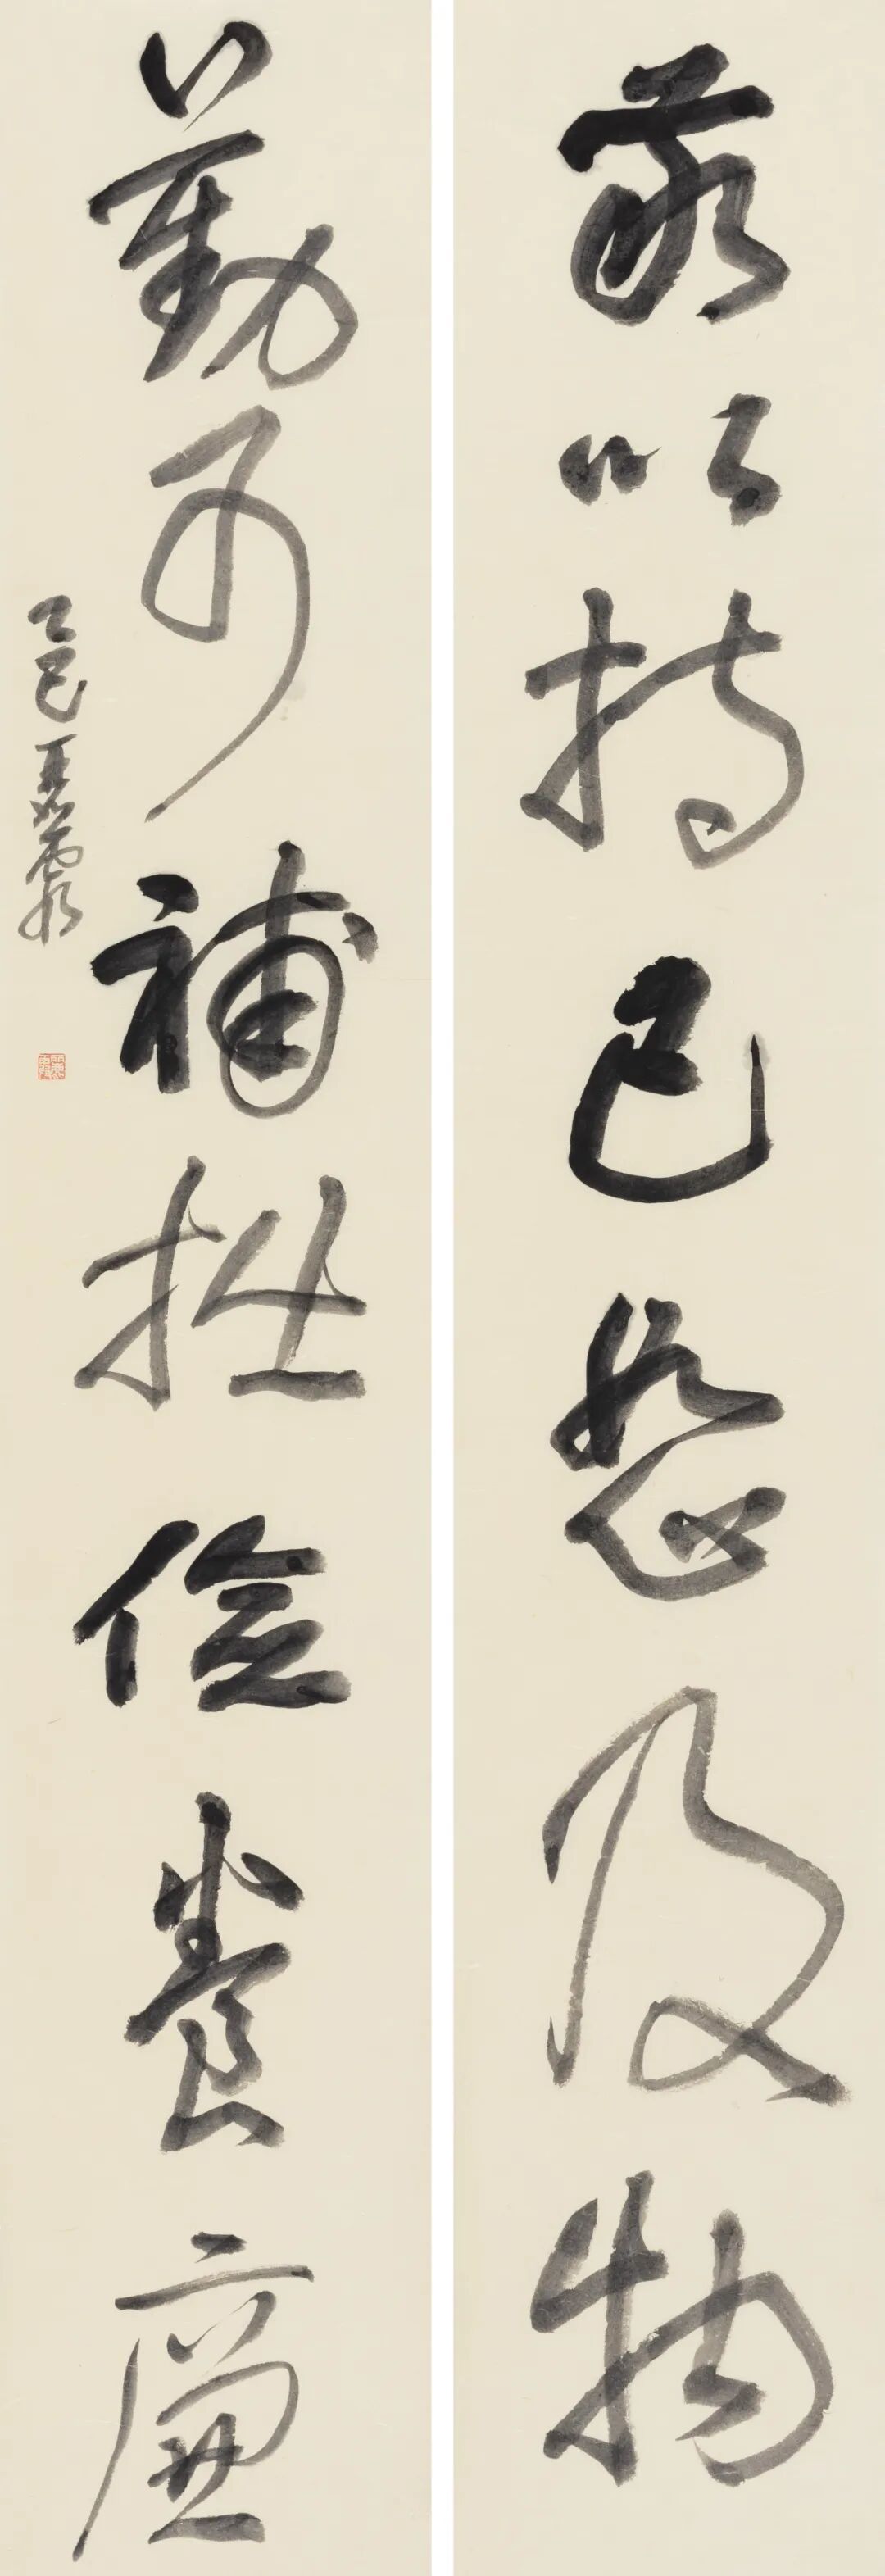 嚴以持己恕及物
勤可補拙儉養廉
乙巳